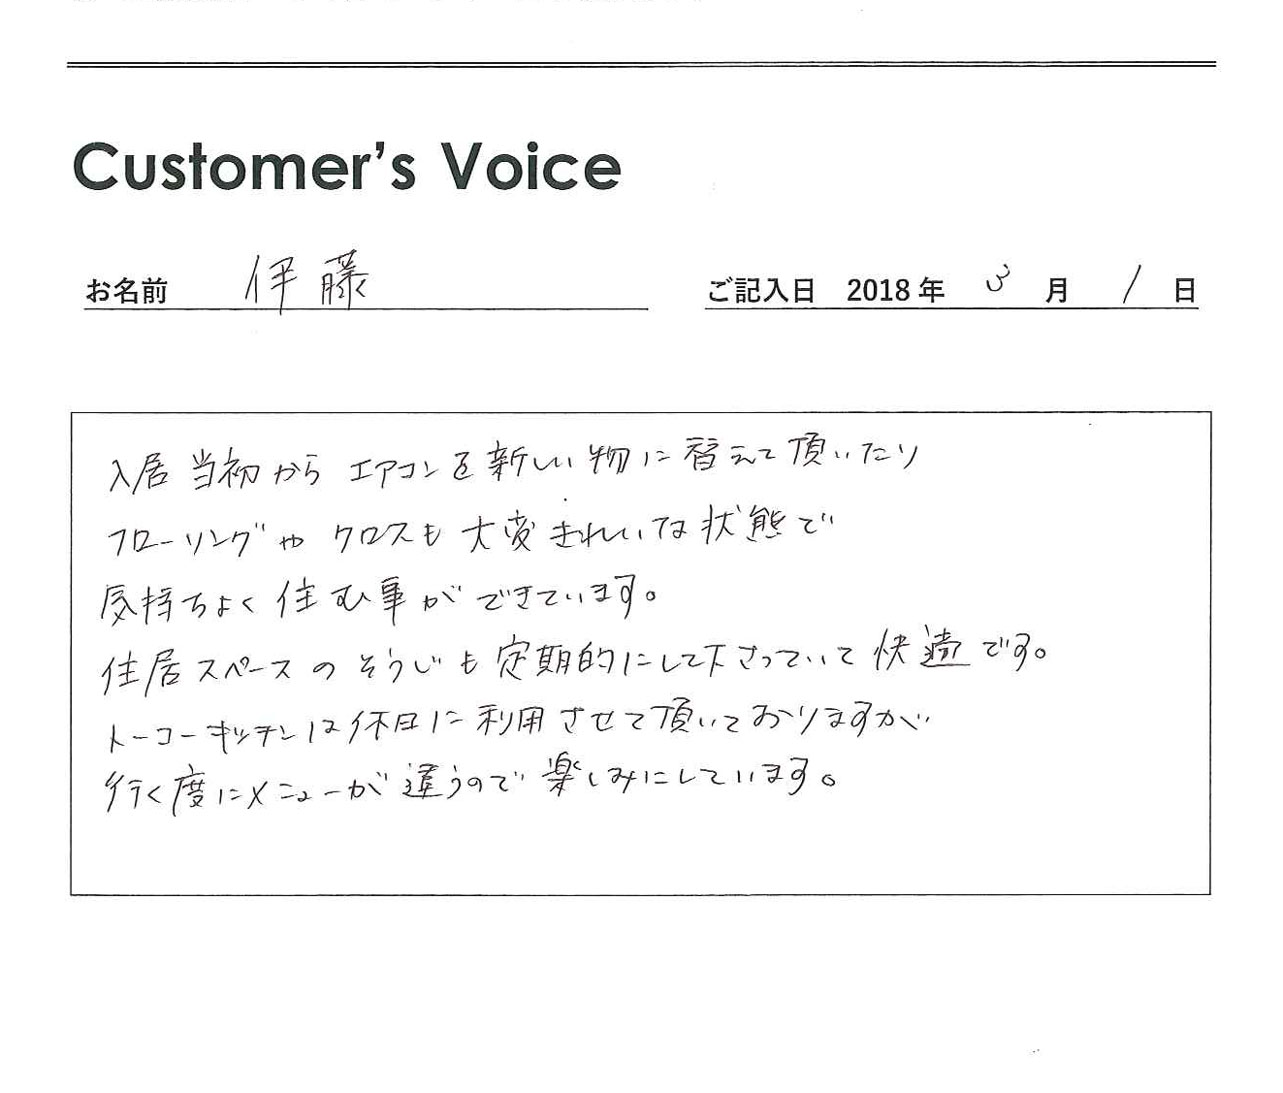 Customer's Voice
お名前 伊藤
ご記入日 2018年 3月 1日
入居当初からエアコンを新しい物に替えて頂いたり
フローリングやクロスも大変きれいな状態で
気持ちよく住む事ができています。
住居スペースのそうじも定期的にして下さっていて快適です。
トーコーキッチンは休日に利用させて頂いておりますが
行く度にメニューが違うので楽しみにしています。